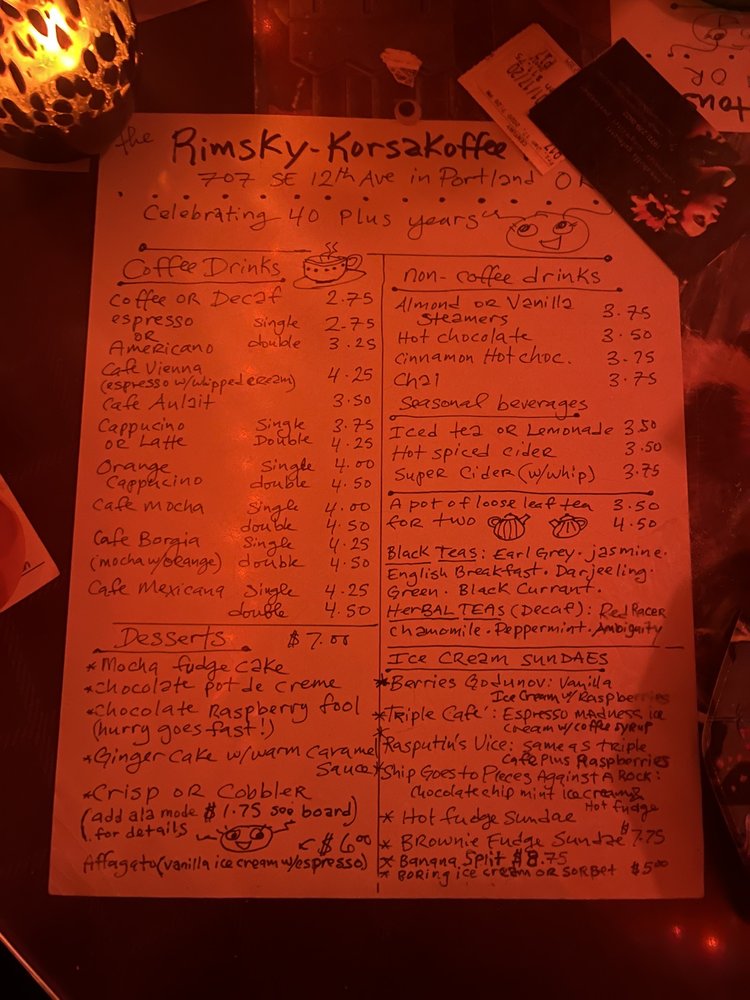 the Rimsky-Korsakoffee
707 SE 12th Ave in Portland OR
Celebrating 40 Plus years
Coffee Drinks
Coffee OR Decaf 2.75
espresso single 2.75
OR
Americano double 3.25
Cafe Vienna
(espresso w/whipped cream) 4.25
Cafe Aulait 3.50
Cappucino Single 3.75
OR Latte Double 4.25
Orange Single 4.00
Cappucino double 4.50
Cafe Mocha Single 4.00
double 4.50
Cafe Borgia Single 4.25
(mocha w/orange) double 4.50
Cafe Mexicana Single 4.25
double 4.50
Desserts $7.00
*Mocha fudge cake
*chocolate pot de creme
*Chocolate Raspberry fool
(hurry goes fast!)
*Ginger Cake w/warm Caramel
Sauce
*Crisp OR Cobbler
(add ala mode $1.75 see board)
for details
$6.00
Affagato (vanilla ice cream w/espresso)
non-coffee drinks
Almond OR Vanilla
Steamers 3.75
Hot chocolate 3.50
Cinnamon Hot choc. 3.75
Chai 3.75
Seasonal beverages
Iced tea OR Lemonade 3.50
Hot spiced cider 3.50
Super Cider (w/whip) 3.75
A pot of loose leaf tea 3.50
for two 4.50
Black Teas: Earl Grey. jasmine.
English Breakfast. Darjeeling.
Green. Black Currant.
HerBAL TEAS (Decaf): Red Racer
Chamomile. Peppermint. Ambiguity
Ice Cream Sundaes
*Berries Godunov: Vanilla
Ice Cream w/ Raspberries
*Triple Cafe': Espresso madness ice
cream w/coffee syrup
*Rasputin's Vice: same as triple
Cafe Plus Raspberries
*Ship Goes to Pieces Against A Rock:
Chocolate chip mint ice cream &
Hot fudge
* Hot fudge Sundae
* Brownie Fudge Sundae $7.75
* Banana Split $8.75
* Boring ice cream OR Sorbet $5.00